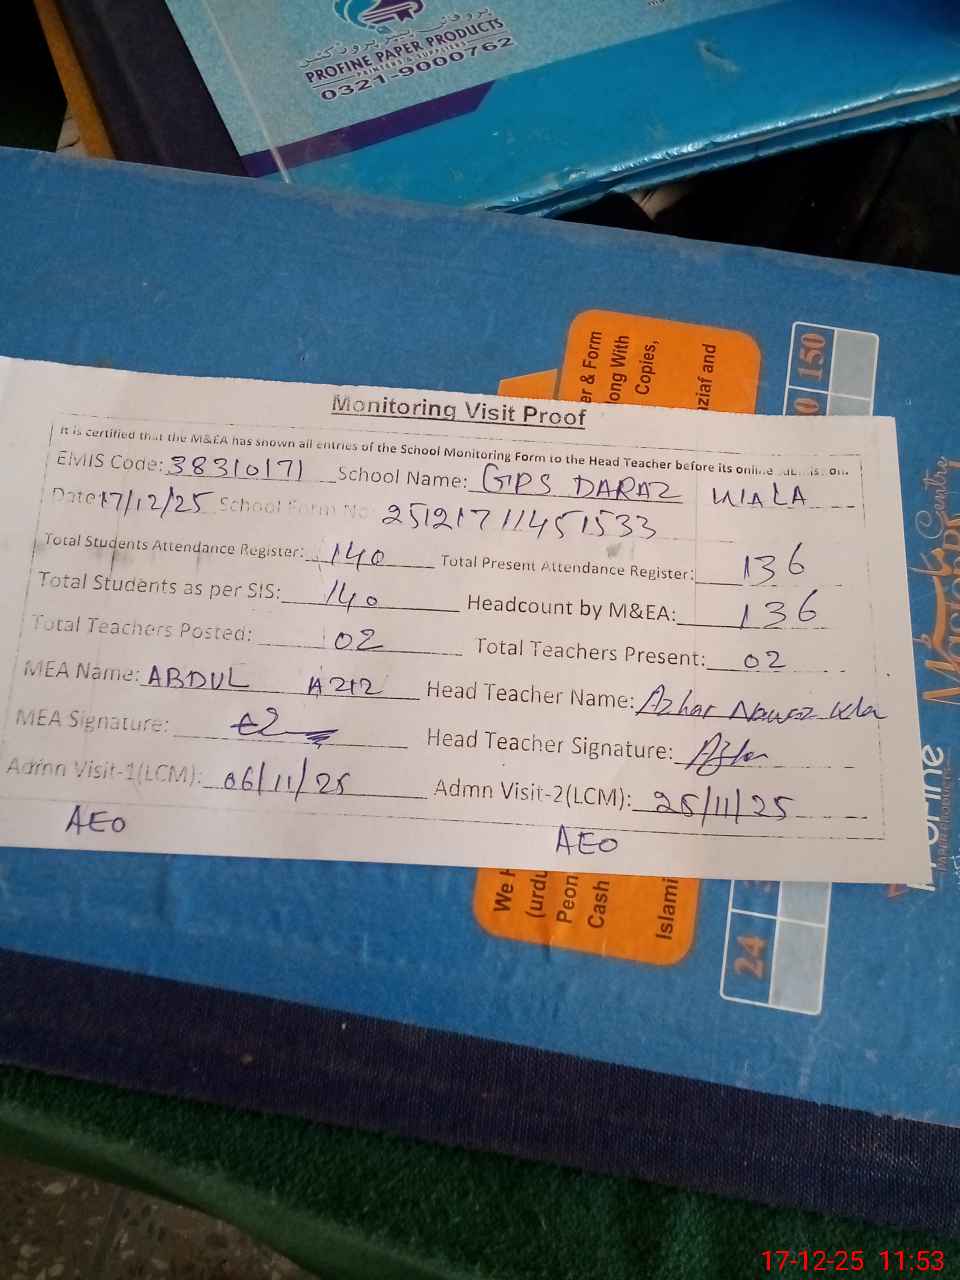 PROFINE PAPER PRODUCTS
PRINTERS & SUPPLIERS
0321-9000762
er & Form
ong With
Copies,
ziaf and
150
Monitoring Visit Proof
It is certified that the M&EA has shown all entries of the School Monitoring Form to the Head Teacher before its online submission.
EMIS Code: 38310171 School Name: GPS DARAZ WALA
Date: 17/12/25 School Form No: 25121711451533
Total Students Attendance Register: 140 Total Present Attendance Register: 136
Total Students as per SIS: 140 Headcount by M&EA: 136
Total Teachers Posted: 02 Total Teachers Present: 02
MEA Name: ABDUL AZIZ Head Teacher Name: Azhar Nawaz
MEA Signature: Head Teacher Signature:
Admn Visit-1(LCM): 06/11/25 Admn Visit-2(LCM): 25/11/25
AEO AEO
We
(urdu
Peon
Cash
Islami
24
Centre
17-12-25 11:53